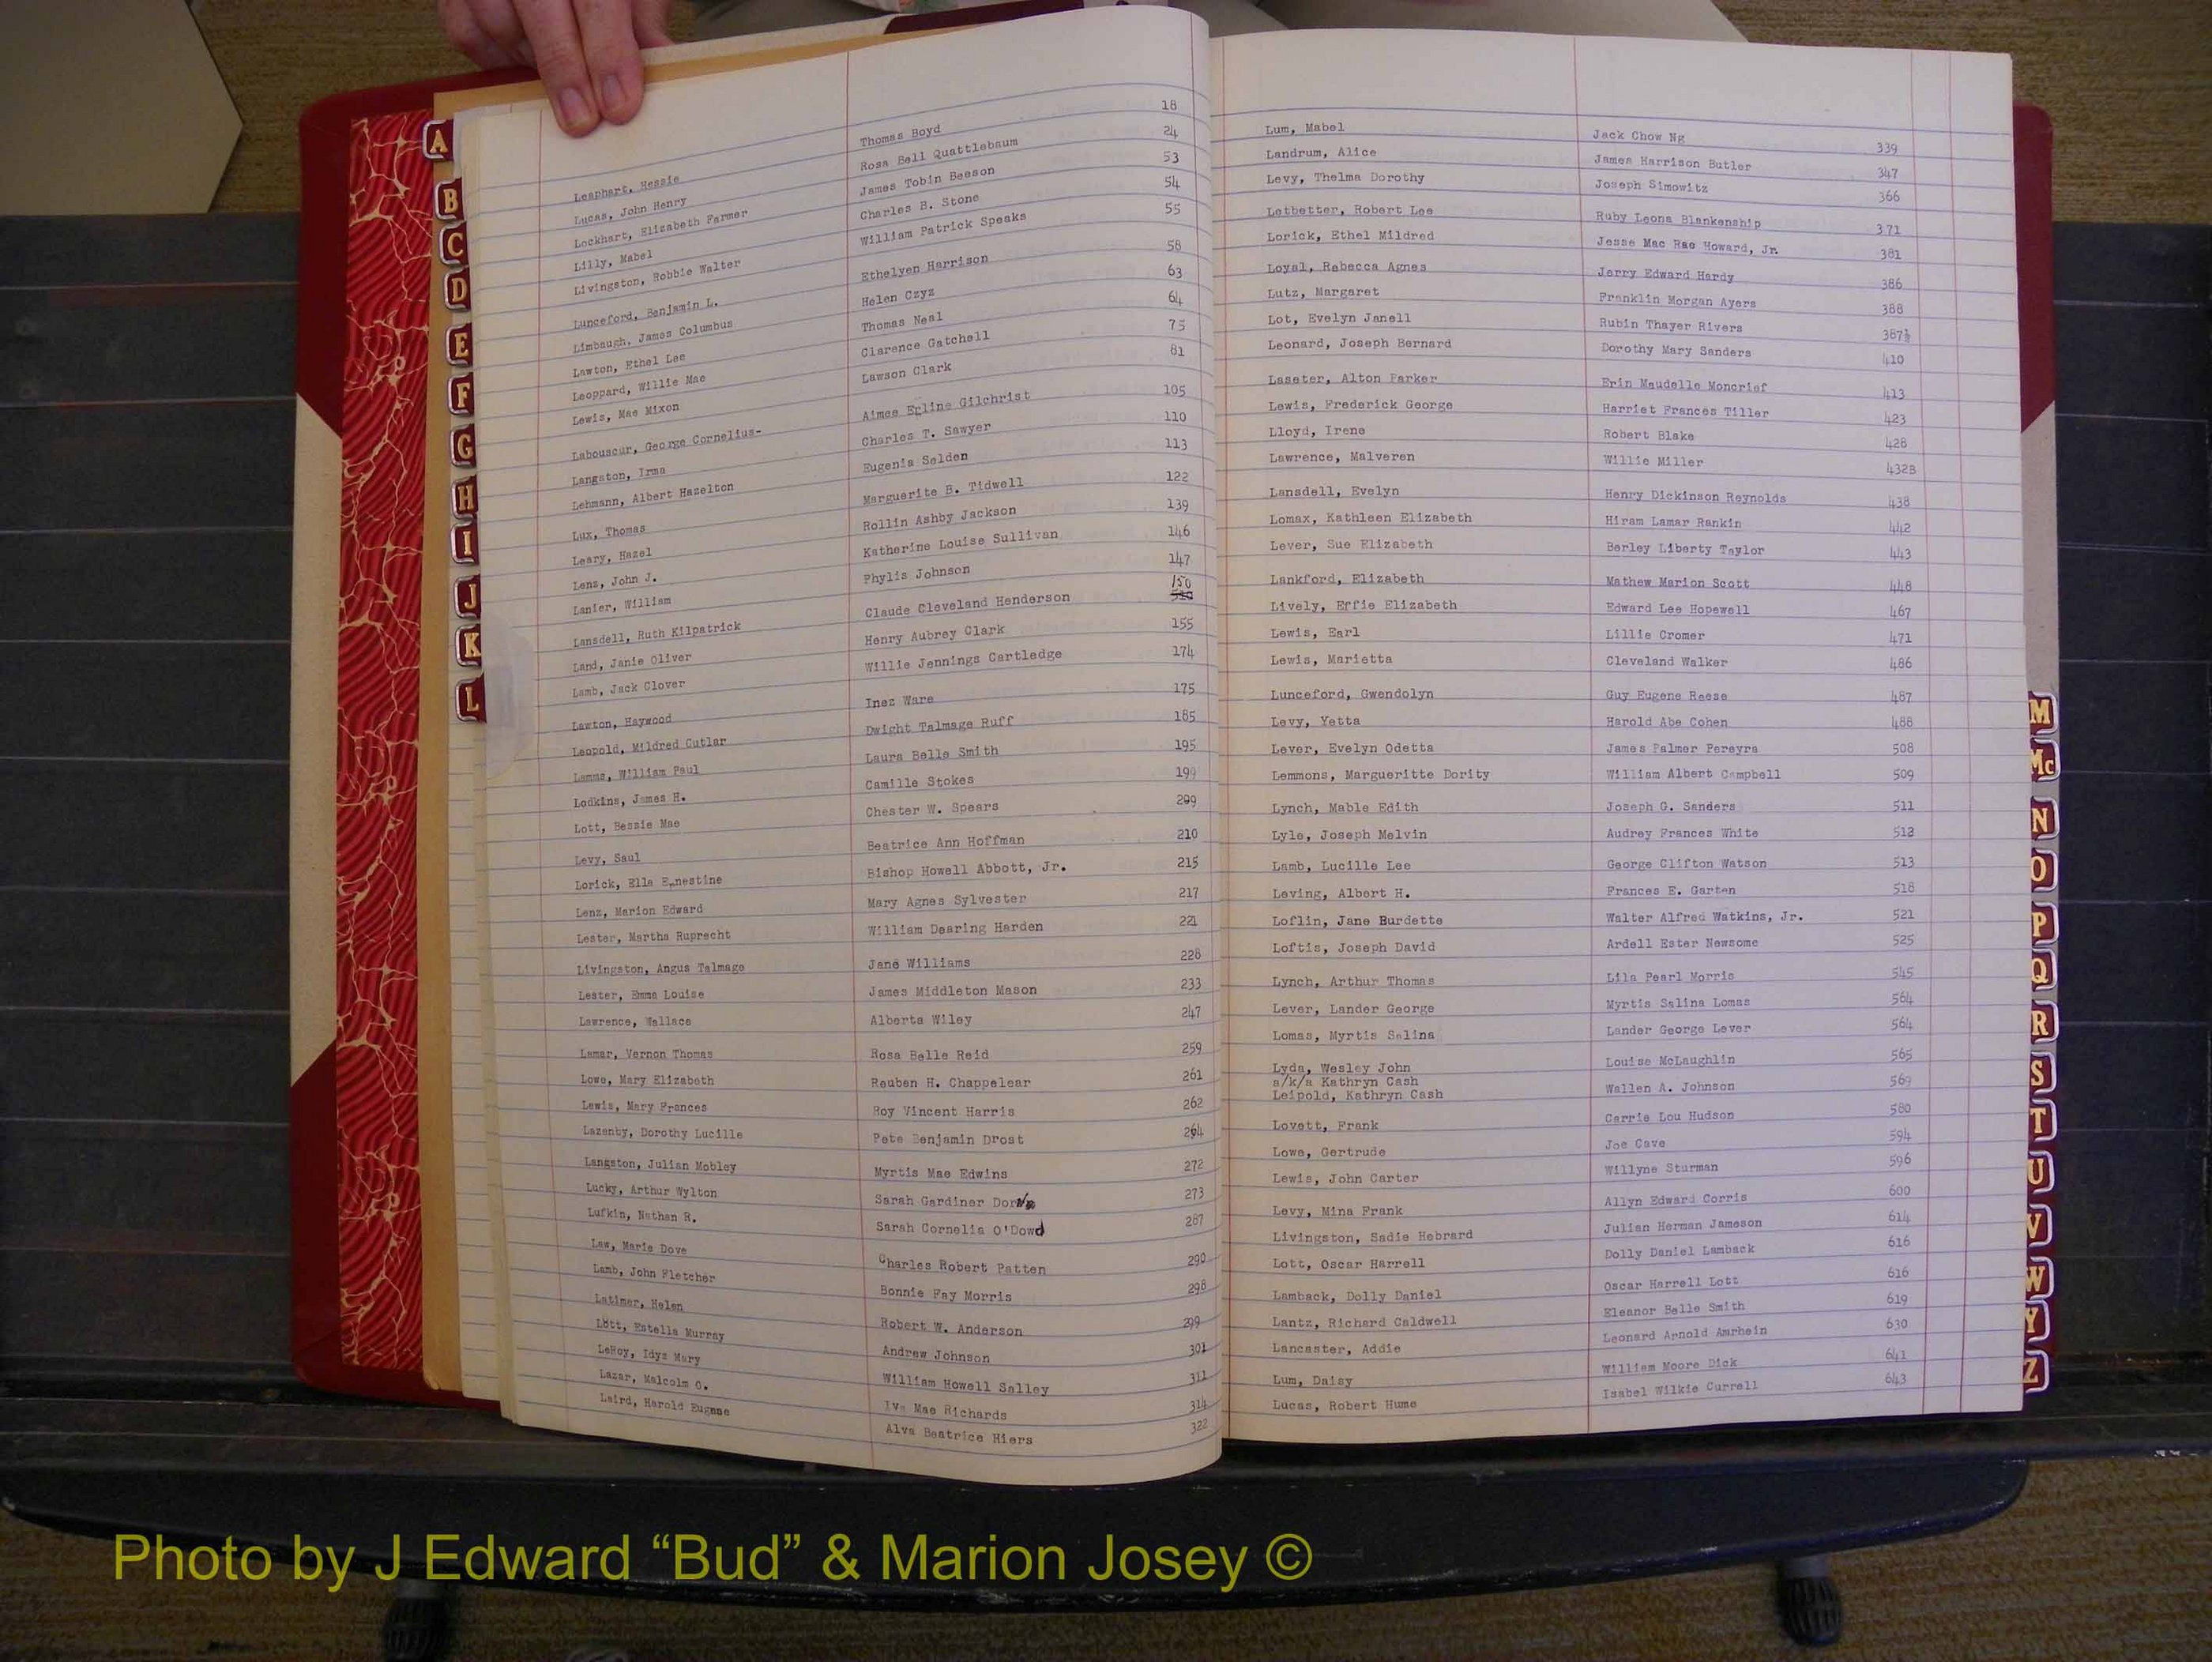 A
B
C
D
E
F
G
H
I
J
K
L
Leaphart, Hessie Thomas Boyd 18
Lucas, John Henry Rosa Bell Quattlebaum 24
Lockhart, Elizabeth Farmer James Tobin Beeson 53
Lilly, Mabel Charles B. Stone 54
Livingston, Robbie Walter William Patrick Speaks 55
Lunceford, Benjamin L. Ethelyen Harrison 58
Limbaugh, James Columbus Helen Czyz 63
Lawton, Ethel Lee Thomas Neal 64
Leoppard, Willie Mae Clarence Gatchell 75
Lewis, Mae Mixon Lawson Clark 81
Labouseur, George Cornelius- Aimee Erline Gilchrist 105
Langston, Irma Charles T. Sawyer 110
Lehmann, Albert Hazelton Eugenia Selden 113
Lux, Thomas Marguerite B. Tidwell 122
Leary, Hazel Rollin Ashby Jackson 139
Lenz, John J. Katherine Louise Sullivan 146
Lanier, William Phylis Johnson 147
Lansdell, Ruth Kilpatrick Claude Cleveland Henderson 150
Land, Janie Oliver Henry Aubrey Clark 155
Lamb, Jack Clover Willie Jennings Cartledge 174
Lawton, Haywood Inez Ware 175
Leopold, Mildred Cutlar Dwight Talmage Ruff 185
Lamms, William Paul Laura Belle Smith 195
Lodkins, James H. Camille Stokes 199
Lott, Bessie Mae Chester W. Spears 209
Levy, Saul Beatrice Ann Hoffman 210
Lorick, Ella Ernestine Bishop Howell Abbott, Jr. 215
Lenz, Marion Edward Mary Agnes Sylvester 217
Lester, Martha Ruprecht William Dearing Harden 221
Livingston, Angus Talmage Jane Williams 228
Lester, Emma Louise James Middleton Mason 233
Lawrence, Wallace Alberta Wiley 247
Lamar, Vernon Thomas Rosa Belle Reid 259
Lowe, Mary Elizabeth Reuben H. Chappelear 261
Lewis, Mary Frances Roy Vincent Harris 262
Lazenby, Dorothy Lucille Pete Benjamin Drost 264
Langston, Julian Mobley Myrtis Mae Edwins 272
Lucky, Arthur Wylton Sarah Gardiner Dorn 273
Lufkin, Nathan R. Sarah Cornelia O'Dowd 287
Law, Marie Dove Charles Robert Patten 290
Lamb, John Fletcher Bonnie Fay Morris 298
Latimer, Helen Robert W. Anderson 299
Lott, Estelle Murray Andrew Johnson 301
LeRoy, Idyz Mary William Howell Salley 311
Lazar, Malcolm O. Iva Mae Richards 314
Laird, Harold Eugene Alva Beatrice Hiers 322
Lum, Mabel Jack Chow Ng 339
Landrum, Alice James Harrison Butler 347
Levy, Thelma Dorothy Joseph Simowitz 366
Letbetter, Robert Lee Ruby Leona Blankenship 371
Lorick, Ethel Mildred Jesse Mac Rae Howard, Jr. 381
Loyal, Rebecca Agnes Jerry Edward Hardy 386
Lutz, Margaret Franklin Morgan Ayers 388
Lot, Evelyn Janell Rubin Thayer Rivers 387½
Leonard, Joseph Bernard Dorothy Mary Sanders 410
Laseter, Alton Parker Erin Maudelle Moncrief 413
Lewis, Frederick George Harriet Frances Tiller 423
Lloyd, Irene Robert Blake 428
Lawrence, Malveren Willie Miller 432B
Lansdell, Evelyn Henry Dickinson Reynolds 438
Lomax, Kathleen Elizabeth Hiram Lamar Rankin 442
Lever, Sue Elizabeth Berley Liberty Taylor 443
Lankford, Elizabeth Mathew Marion Scott 448
Lively, Effie Elizabeth Edward Lee Hopewell 467
Lewis, Earl Lillie Cromer 471
Lewis, Marietta Cleveland Walker 486
Lunceford, Gwendolyn Guy Eugene Reese 487
Levy, Yetta Harold Abe Cohen 488
Lever, Evelyn Odetta James Palmer Pereyra 508
Lemmons, Margueritte Dority William Albert Campbell 509
Lynch, Mable Edith Joseph G. Sanders 511
Lyle, Joseph Melvin Audrey Frances White 512
Lamb, Lucille Lee George Clifton Watson 513
Leving, Albert H. Frances E. Garten 518
Loflin, Jane Burdette Walter Alfred Watkins, Jr. 521
Loftis, Joseph David Ardell Ester Newsome 525
Lynch, Arthur Thomas Lila Pearl Morris 545
Lever, Lander George Myrtis Salina Lomas 564
Lomas, Myrtis Salina Lander George Lever 564
Lyda, Wesley John Louise McLaughlin 565
a/k/a Kathryn Cash
Leipold, Kathryn Cash Wallen A. Johnson 569
Lovett, Frank Carrie Lou Hudson 580
Lowe, Gertrude Joe Cave 594
Lewis, John Carter Willyne Sturman 596
Levy, Mina Frank Allyn Edward Corris 600
Livingston, Sadie Hebrard Julian Herman Jameson 614
Lott, Oscar Harrell Dolly Daniel Lamback 616
Lamback, Dolly Daniel Oscar Harrell Lott 616
Lantz, Richard Caldwell Eleanor Belle Smith 619
Lancaster, Addie Leonard Arnold Amrhein 630
Lum, Daisy William Moore Dick 641
Lucas, Robert Hume Isabel Wilkie Currell 643
M
Mc
N
O
P
Q
R
S
T
U
V
W
Y
Z
Photo by J Edward “Bud” & Marion Josey ©